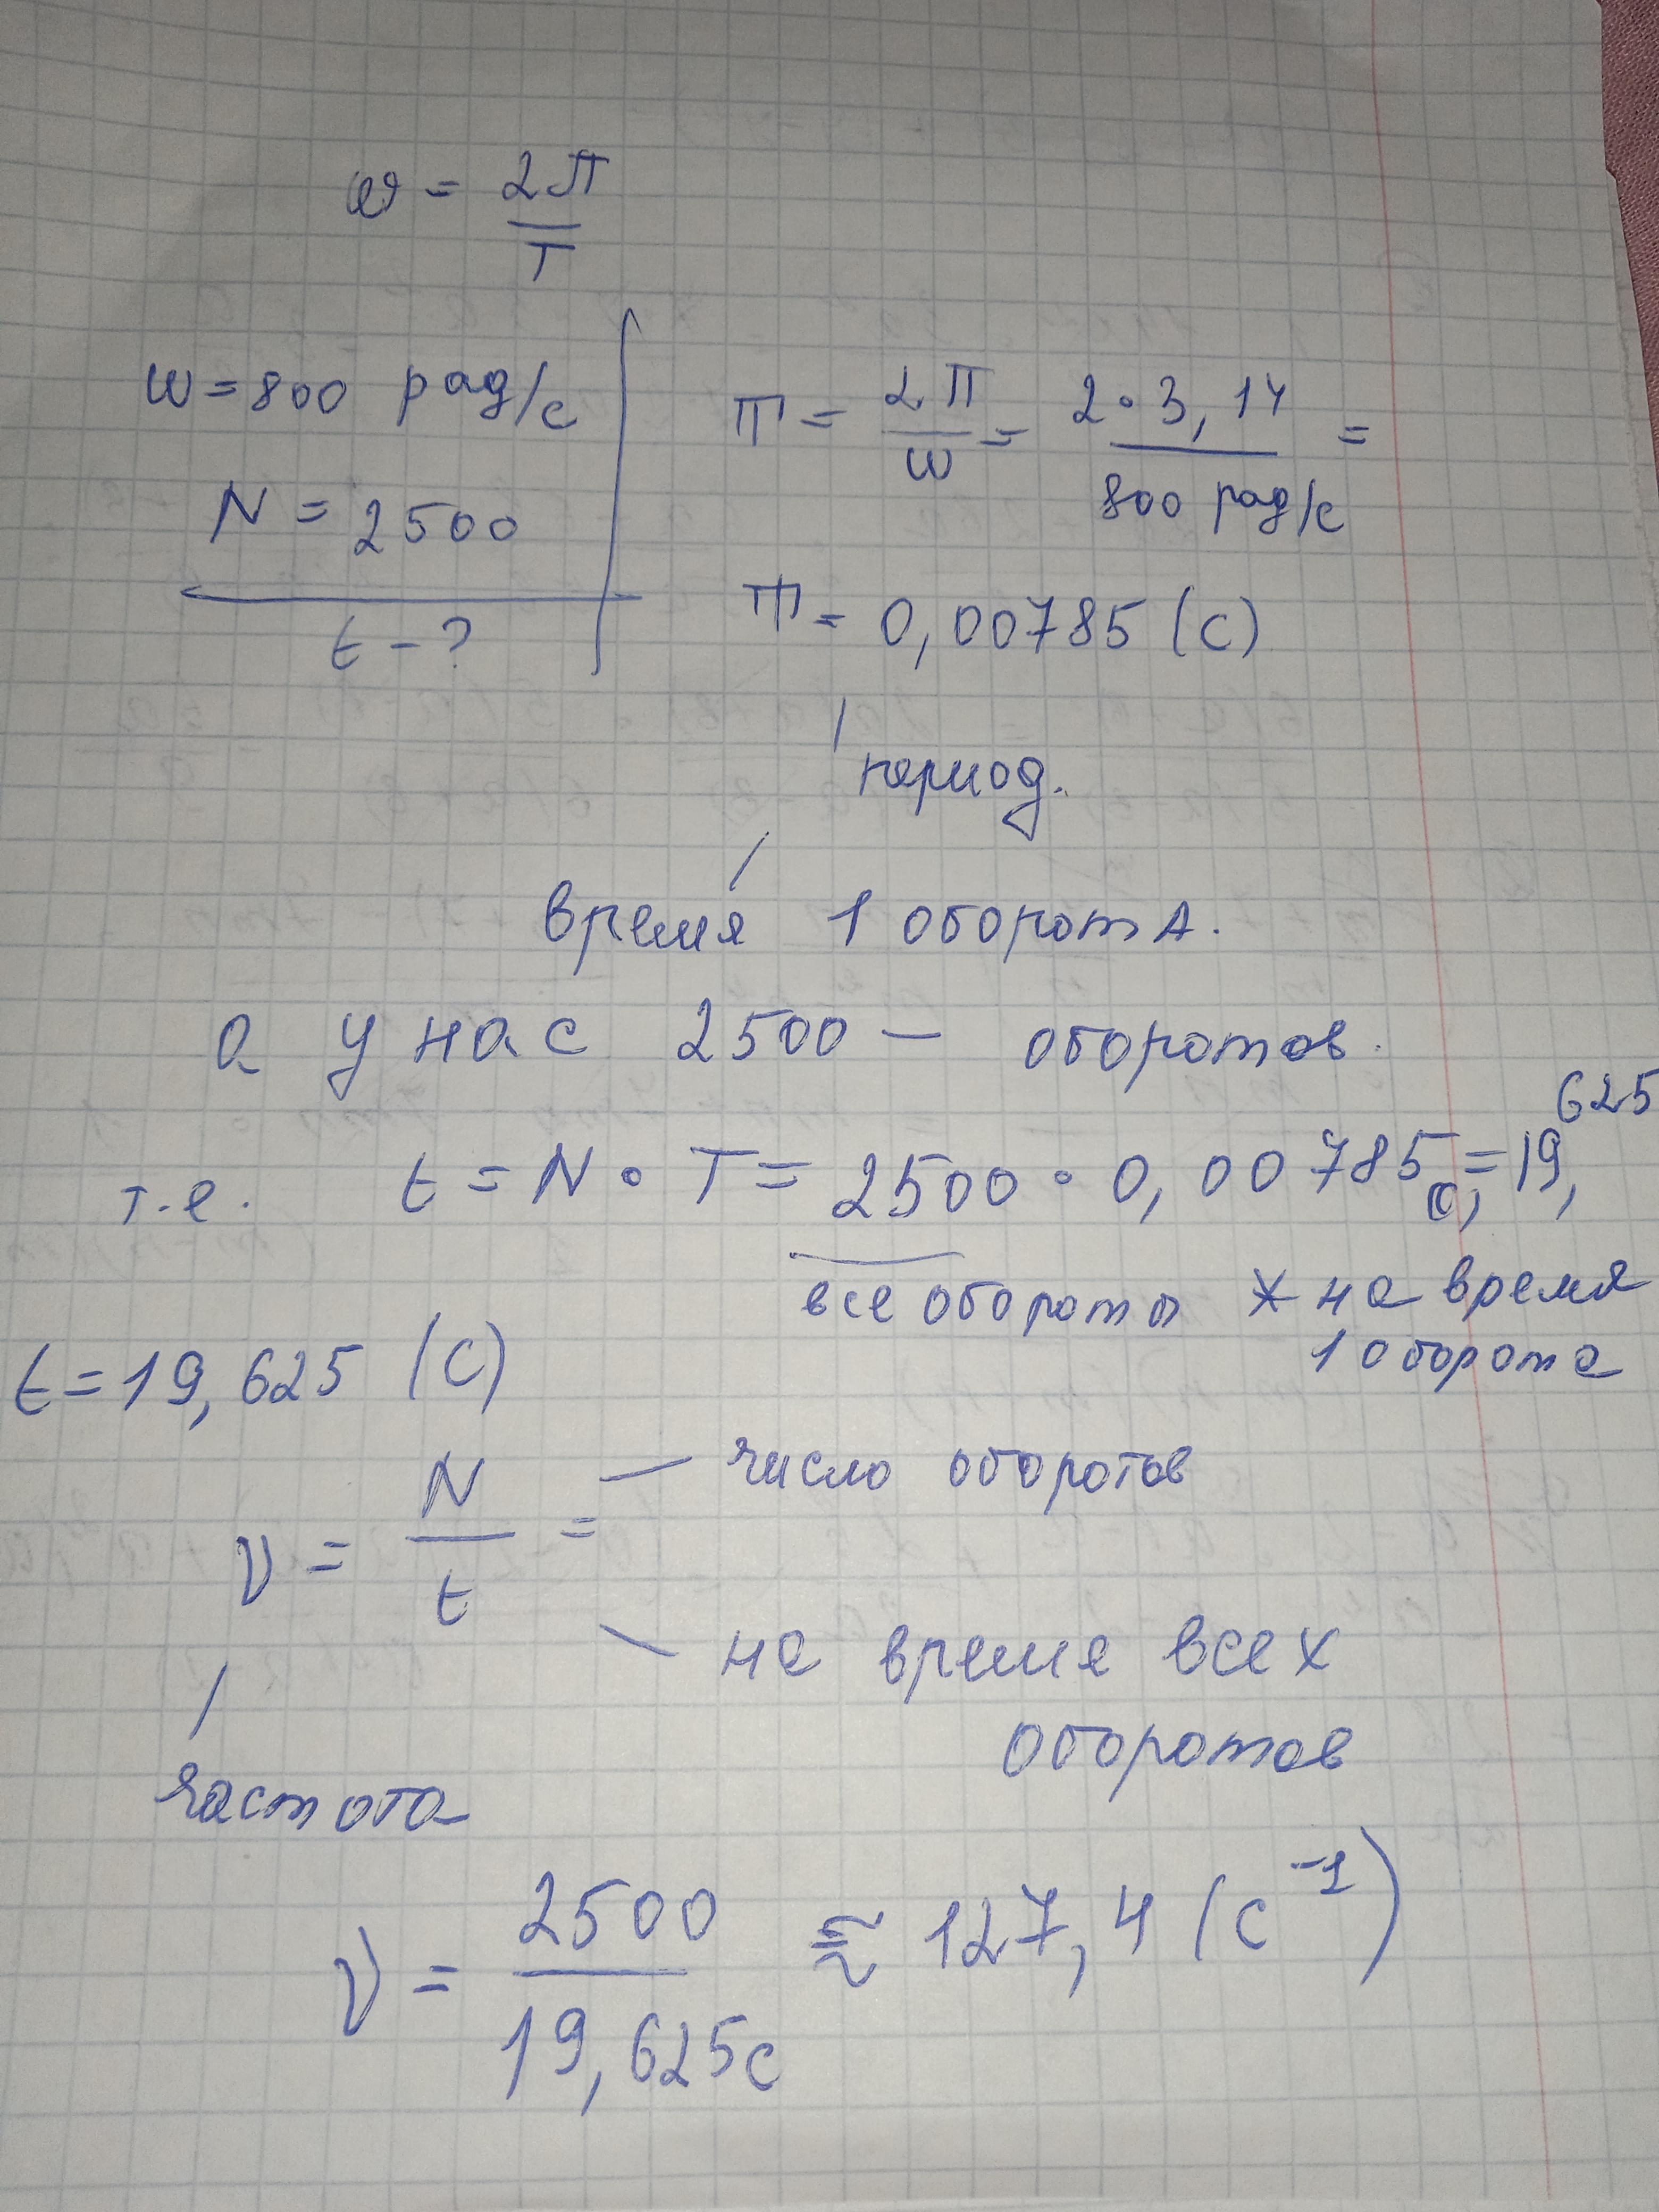 ω = 2π/T
ω = 800 рад/с
N = 2500
t - ?
T = 2π/ω = 2 · 3,14/800 рад/с =
T = 0,00785 (с)
период.
время 1 оборота.
а у нас 2500 — оборотов.
т.е. t = N · T = 2500 · 0,00785 с, = 19,625
все обороты * на время
1 оборота
t = 19,625 (с)
ν = N/t =
— число оборотов
— на время всех
оборотов
частота
ν = 2500/19,625с ≈ 127,4 (с⁻¹)